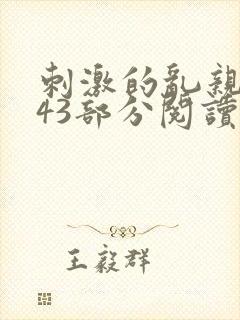 刺激的亂親
43部分閱讀
王毅群